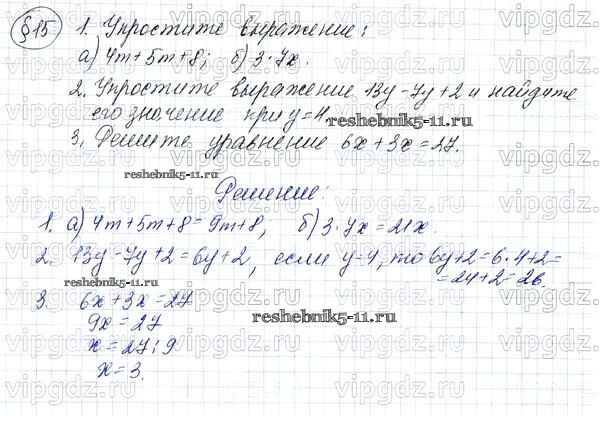 §15 1. Упростите выражение:
а) 4m+5m+8; б) 3·7x.
2. Упростите выражение 13y-7y+2 и найдите
его значение при y=4.
reshebnik5-11.ru
3. Решите уравнение 6x+3x=27.
reshebnik5-11.ru
Решение:
1. а) 4m+5m+8=9m+8, б) 3·7x=21x.
2. 13y-7y+2=6y+2, если y=4, то 6y+2=6·4+2=
=24+2=26.
reshebnik5-11.ru
3. 6x+3x=27
9x=27
reshebnik5-11.ru
x=27:9
x=3.
vipgdz.ru